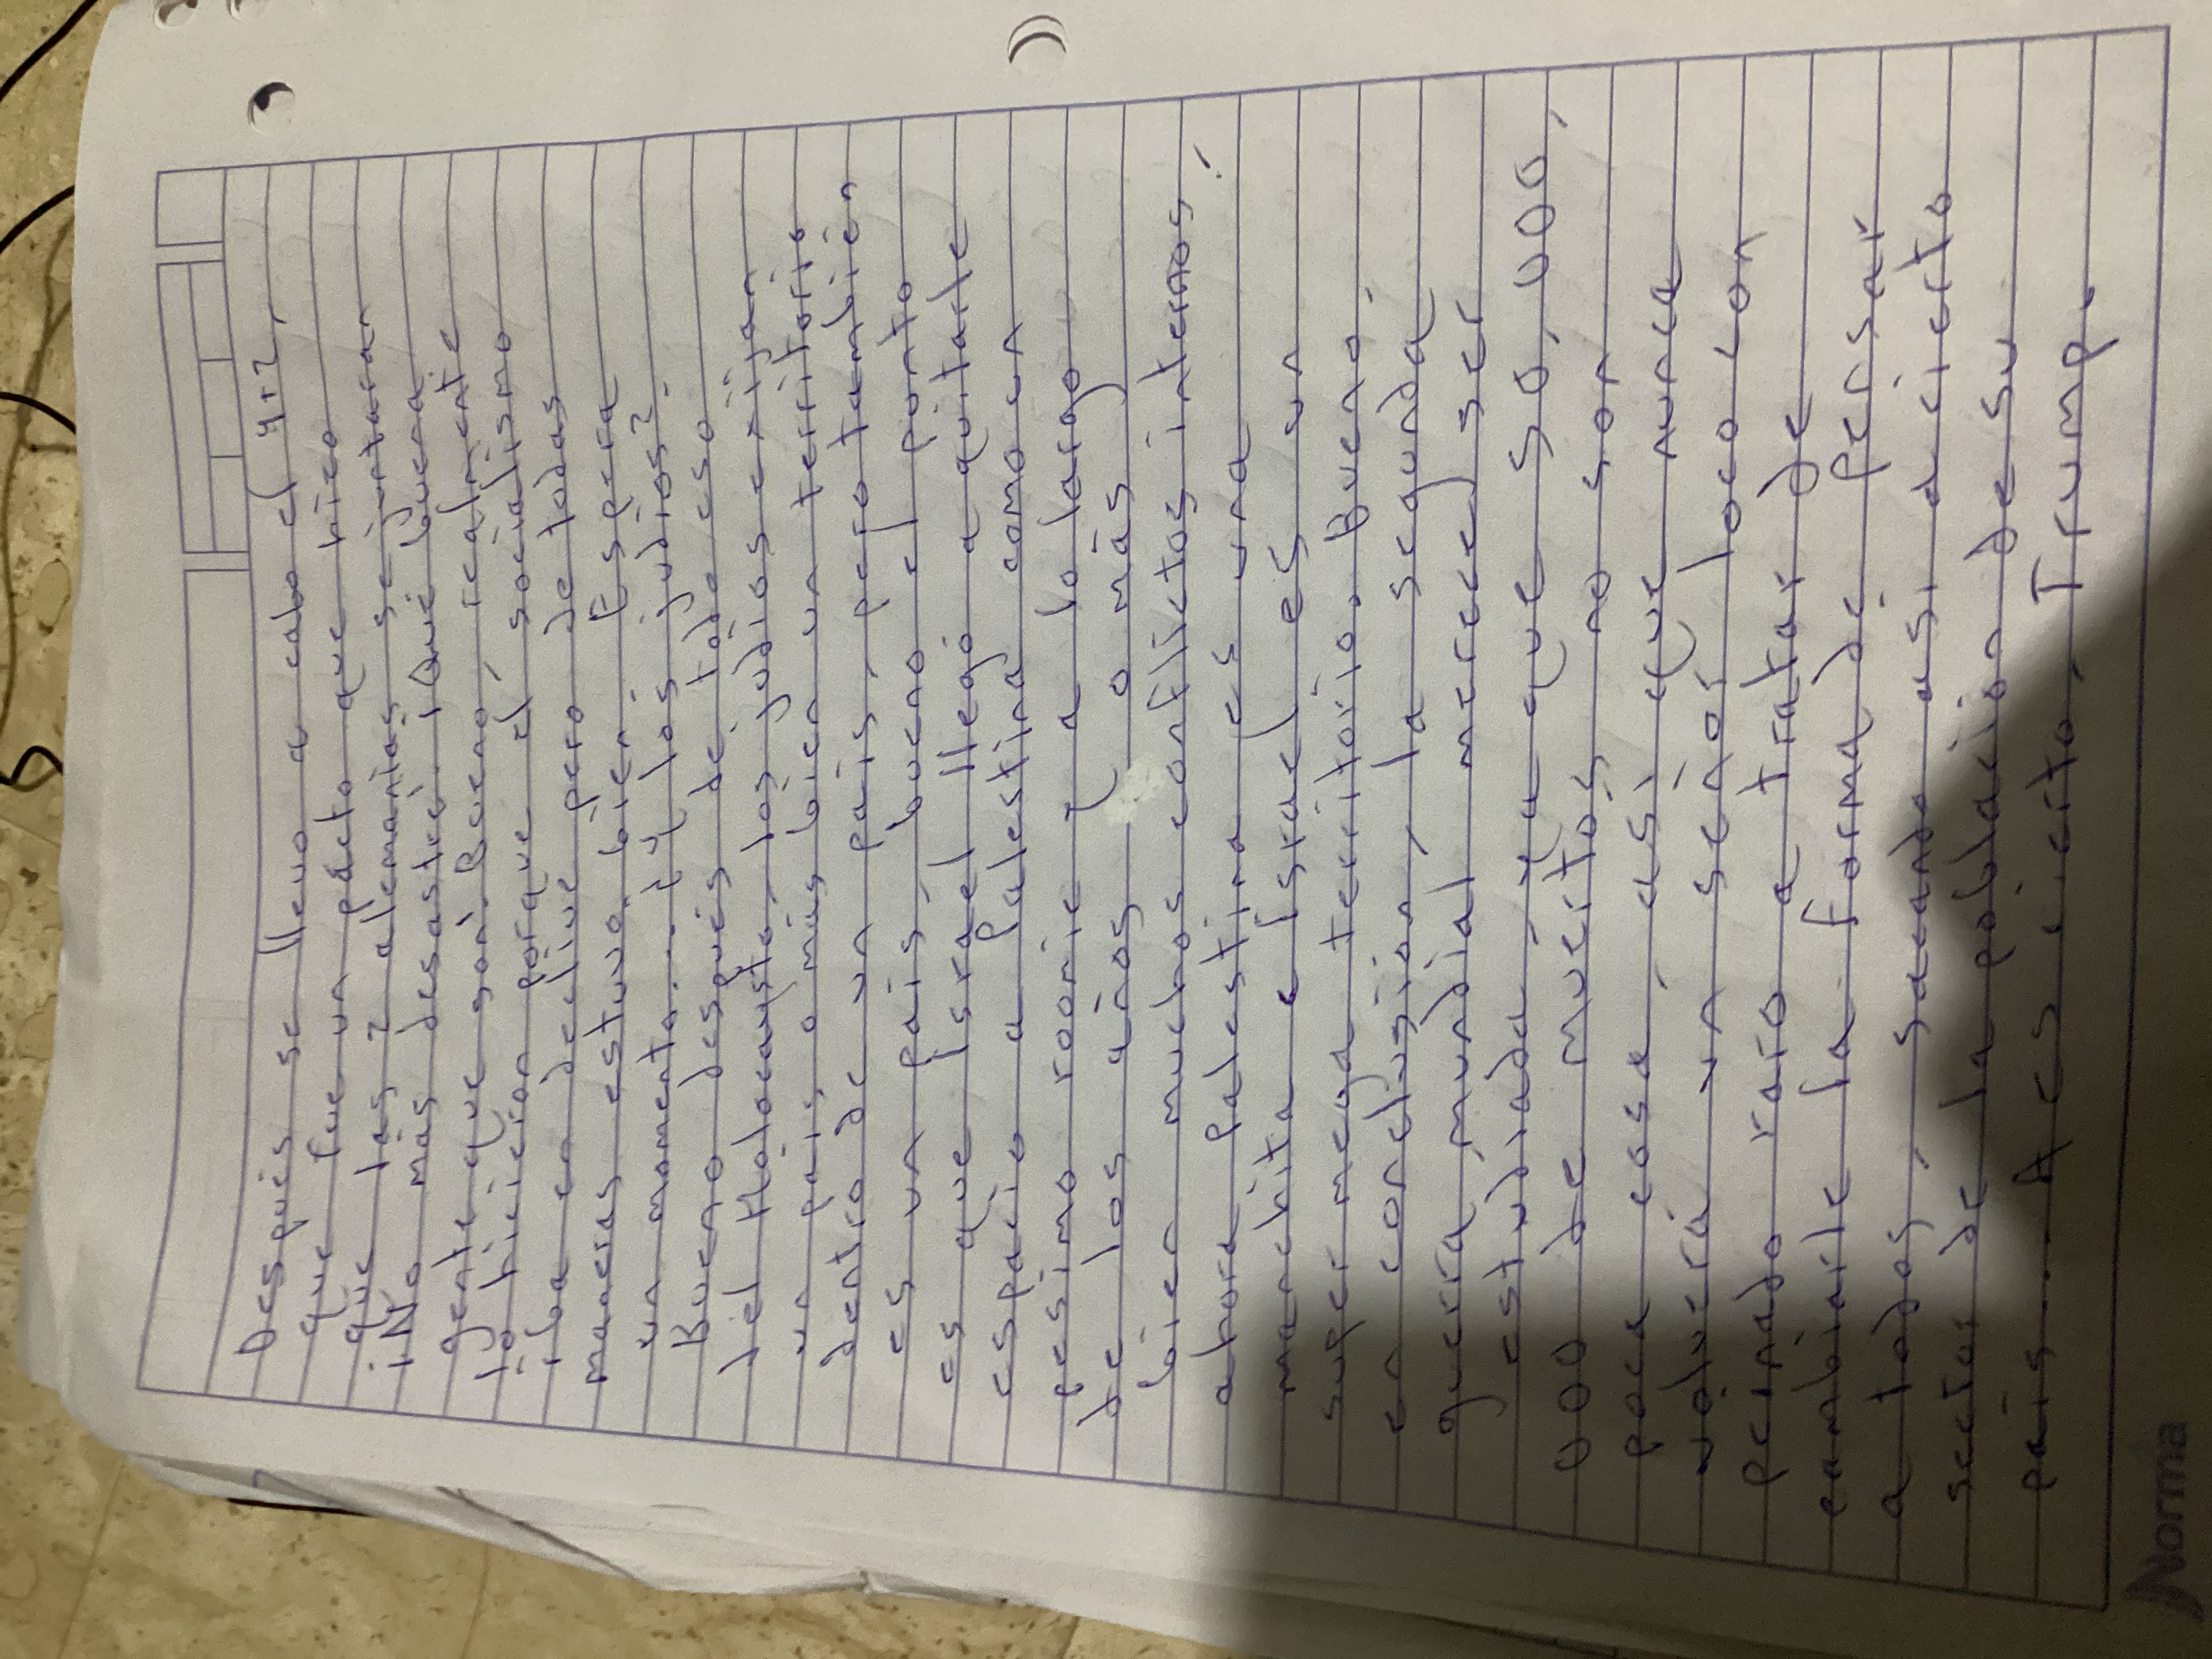 Después se llevo a cabo el 4+2,
que fue un pacto que hizo
que las 2 alemanias se juntaran
¡No más desastre! ¡Qué buena
gente que son! Bueno, realmente
lo hicieron porque el socialismo
iba en declive pero de todas
maneras estuvo bien. Espera
un momento... ¿Y los judios?.
Bueno después de todo eso
del Holocausto, los judios exijan
un pais, o más bien un territorio
dentro de un pais, pero también
es un pais, bueno el punto
es que Israel llegó a quitarle
espacio a Palestina como un
pesimo roomie y a lo largo
de los años y o más
bien muchos conflictos internos!
ahora Palestina es una
manchita e Israel es un
super mega territorio. Bueno,
en conclusión, la segunda
guerra mundial merece ser
estudiada, ya que 50,000,
000 de muertos no son
poca cosa, asi que nunca
volverá un señor loco con
peinado raro a tratar de
cambiarle la forma de pensar
a todos, sacando asi a cierto
sector de la población de su
pais.... A es cierto, Trump.
Norma